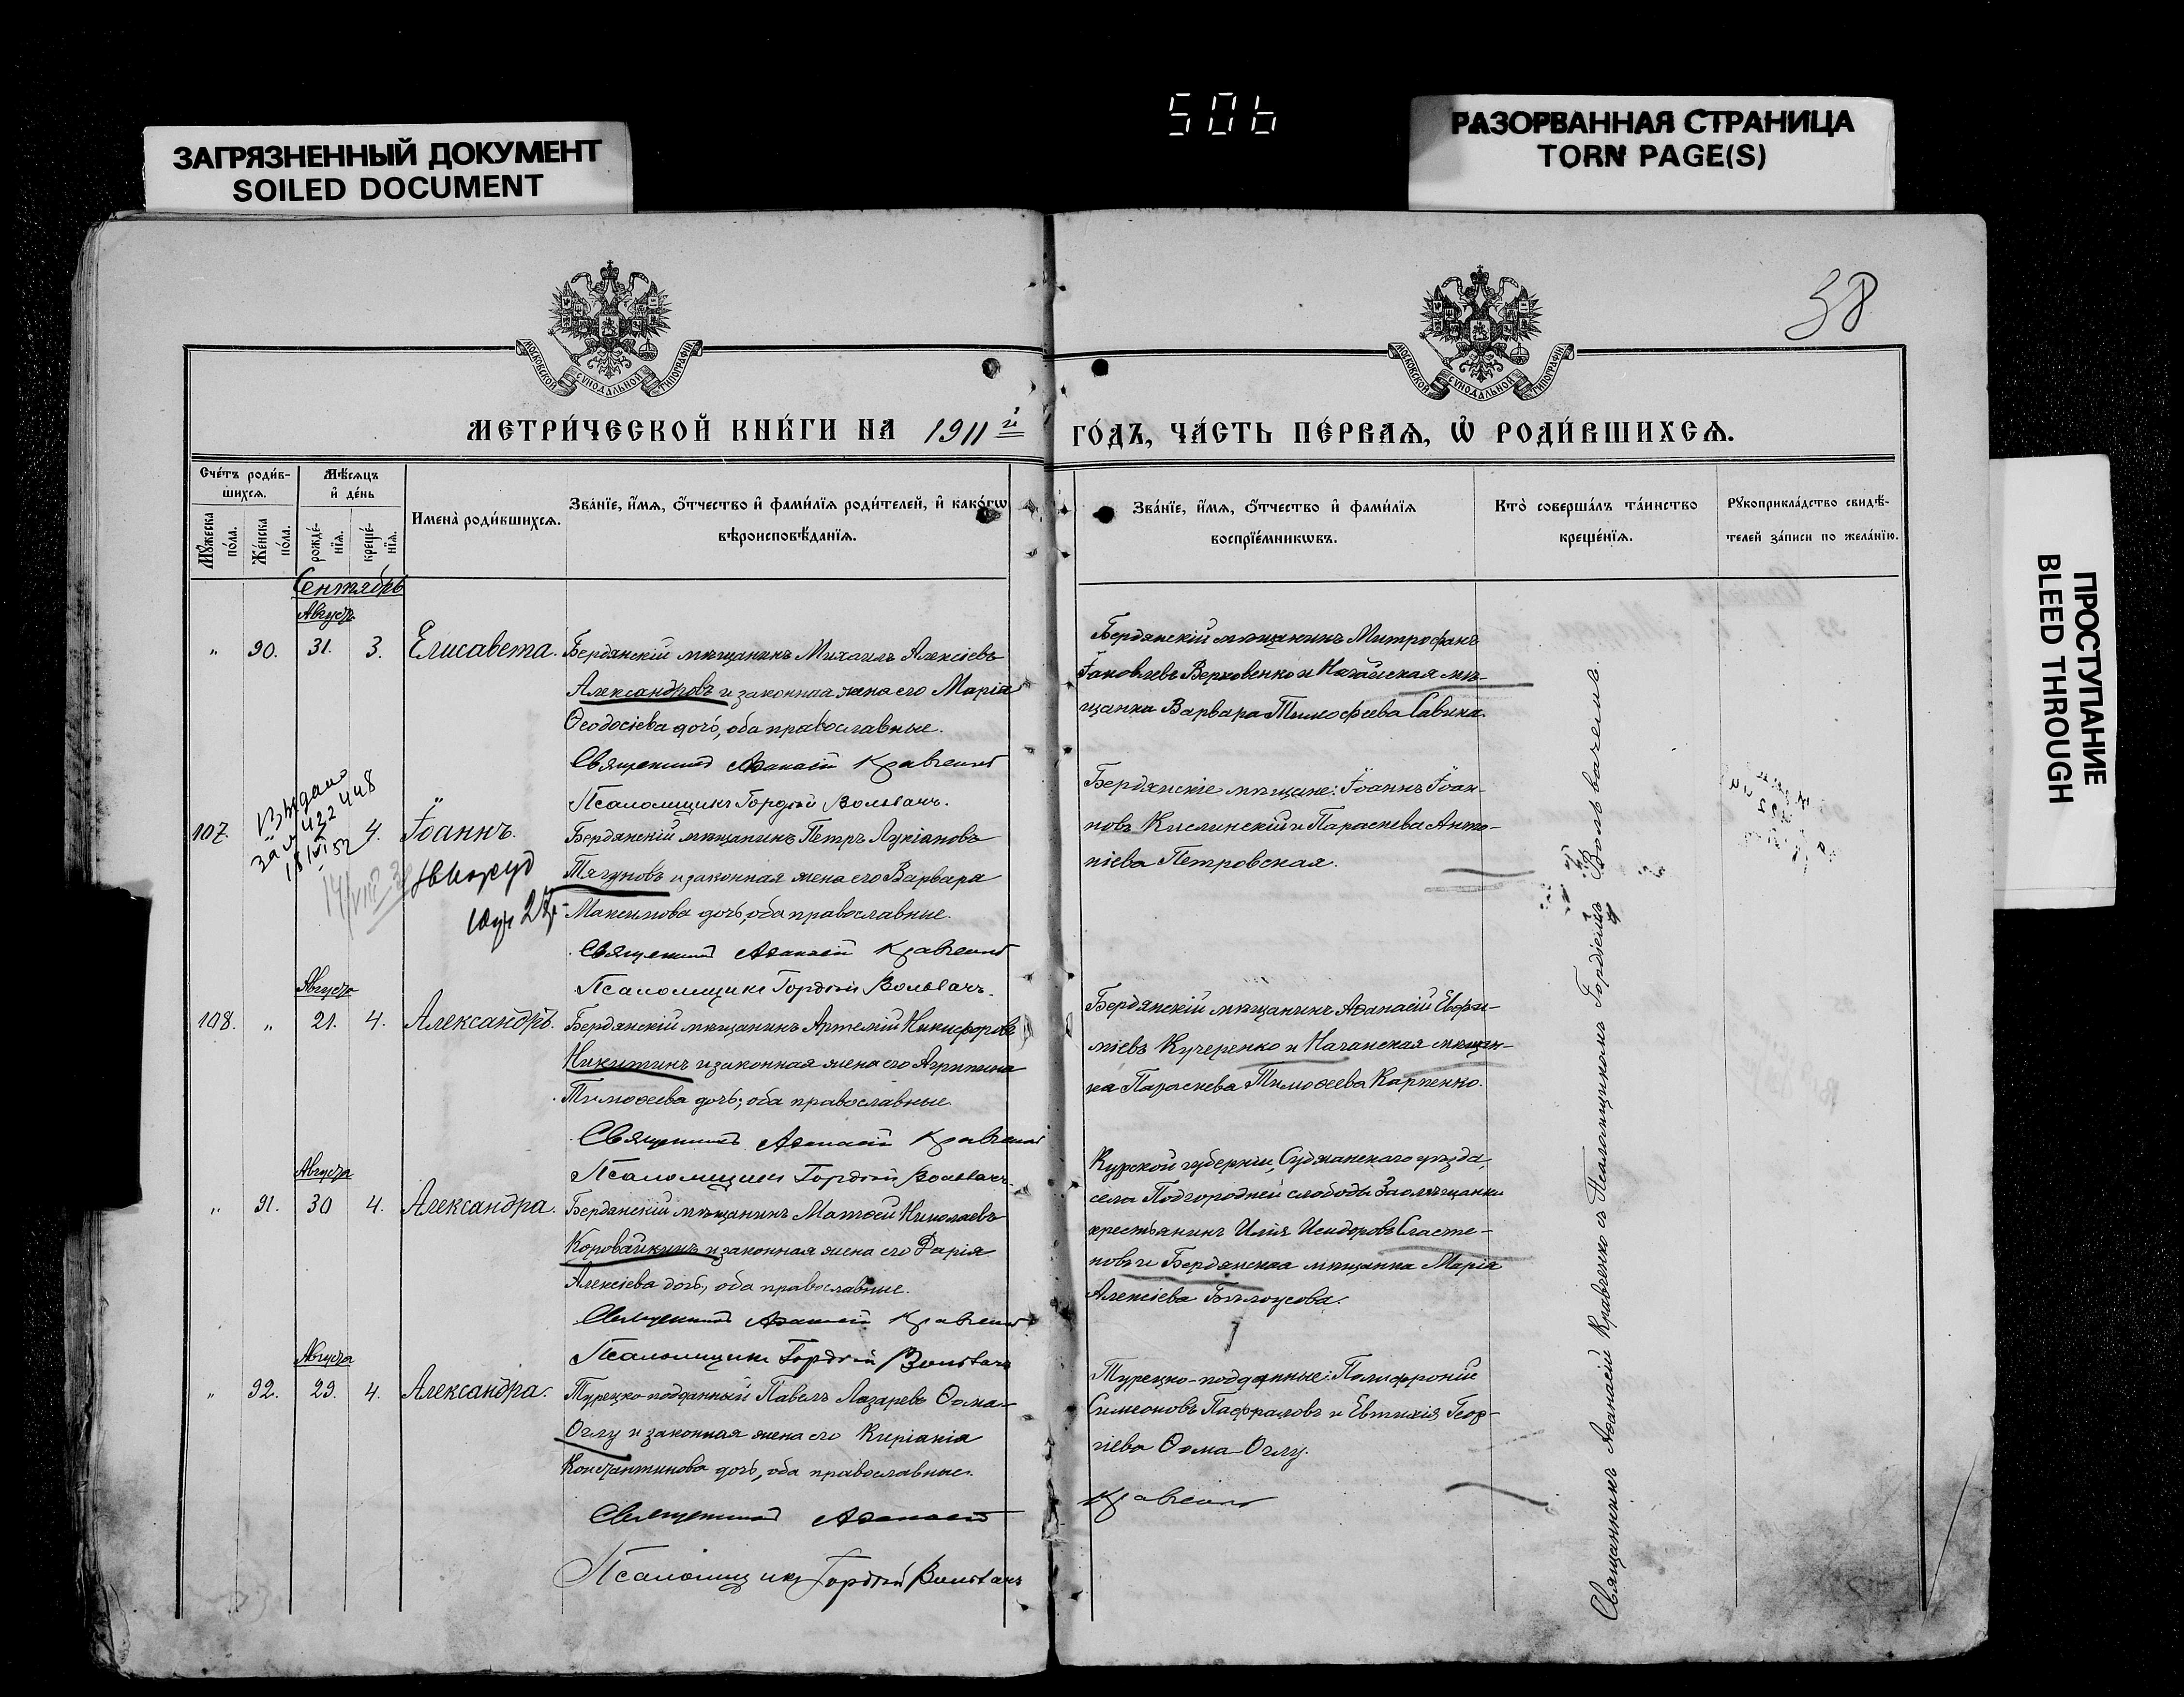 506
ЗАГРЯЗНЕННЫЙ ДОКУМЕНТ
SOILED DOCUMENT
РАЗОРВАННАЯ СТРАНИЦА
TORN PAGE(S)
ПРОСТУПАНИЕ
BLEED THROUGH
38
МОСКОВСКОЙ СѴНОДАЛЬНОЙ ТИПОГРАФІИ
МОСКОВСКОЙ СѴНОДАЛЬНОЙ ТИПОГРАФІИ
МЕТРИ́ЧЕСКОЙ КНИ́ГИ НА 1911й
ГО́ДЪ, ЧА́СТЬ ПЕ́РВАѦ, Ѡ҆ РОДИ́ВШИХСѦ.
Сче́тъ роди́в-
шихсѧ.
Мѣ́сѧцъ
и҆ де́нь
Мꙋ́жеска по́ла.
Же́нска по́ла.
рожде́-
нїѧ.
креще́-
нїѧ.
Имена̀ роди́вшихсѧ.
Зва́нїе, и҆́мѧ, ѻ҆́тчество и҆ фами́лїѧ роди́телей, и҆ како́гѡ
вѣроисповѣ́данїѧ.
Зва́нїе, и҆́мѧ, ѻ҆́тчество и҆ фами́лїѧ
воспрїе́мникѡвъ.
Кто̀ соверша́лъ та́инство
креще́нїѧ.
Рꙋкоприкла́дство свидѣ́-
телей за́писи по жела́нїю.
Сентябрь
Августа
" 90. 31. 3. Елисавета.
Бердянскій мѣщанинъ Михаилъ Алексіевъ
Александровъ и законная жена его Марія
Ѳеодосіева дочь, оба православные.
Священникъ Аѳанасій Кравченко
Псаломщикъ Гордѣй Вольвачъ.
Бердянскій мѣщанинъ Митрофанъ
Іаковлевъ Верховенко и Ногайская мѣ-
щанка Варвара Тимофеева Савина.
Выдано
18/VI 52
107. 4. Іоаннъ.
Бердянскій мѣщанинъ Петръ Лукіановъ
Тягуновъ и законная жена его Варвара
Максимова дочь, оба православные.
Священникъ Аѳанасій Кравченко
Псаломщикъ Гордѣй Вольвачъ.
Бердянскіе мѣщане: Іоаннъ Іоан-
новъ Кислинскій и Параскева Анто-
ніева Петровская.
Августа
108. " 21. 4. Александръ.
Бердянскій мѣщанинъ Артемій Никифоровъ
Никитинъ и законная жена его Агрипина
Тимоѳеева дочь, оба православные.
Священникъ Аѳанасій Кравченко
Псаломщикъ Гордѣй Вольвачъ.
Бердянскій мѣщанинъ Аѳанасій Евфи-
міевъ Кучеренко и Ногайская мѣщан-
ка Параскева Тимоѳеева Карпенко.
Августа
" 91. 30 4. Александра.
Бердянскій мѣщанинъ Матѳей Николаевъ
Коровайкинъ и законная жена его Дарія
Алексіева дочь, оба православные.
Священникъ Аѳанасій Кравченко
Псаломщикъ Гордѣй Вольвачъ
Курской губерніи, Суджанскаго уѣзда,
села Подгородней слободы Заолѣшанки
крестьянинъ Илія Исидоровъ Сласте-
новъ и Бердянская мѣщанка Марія
Алексіева Бѣлоусова.
Августа
" 92. 29. 4. Александра.
Турецко-подданный Павелъ Лазаревъ Ѳома-
Оглу и законная жена его Киріакія
Константинова дочь, оба православные.
Священникъ Аѳанасій Кравченко
Псаломщикъ Гордѣй Вольвачъ
Турецко-подданные: Полихроній
Симеоновъ Пафраловъ и Евтихія Геор-
гіева Ѳома-Оглу.
Священникъ Аѳанасій Кравченко съ Псаломщикомъ Гордіемъ Вольвачемъ.